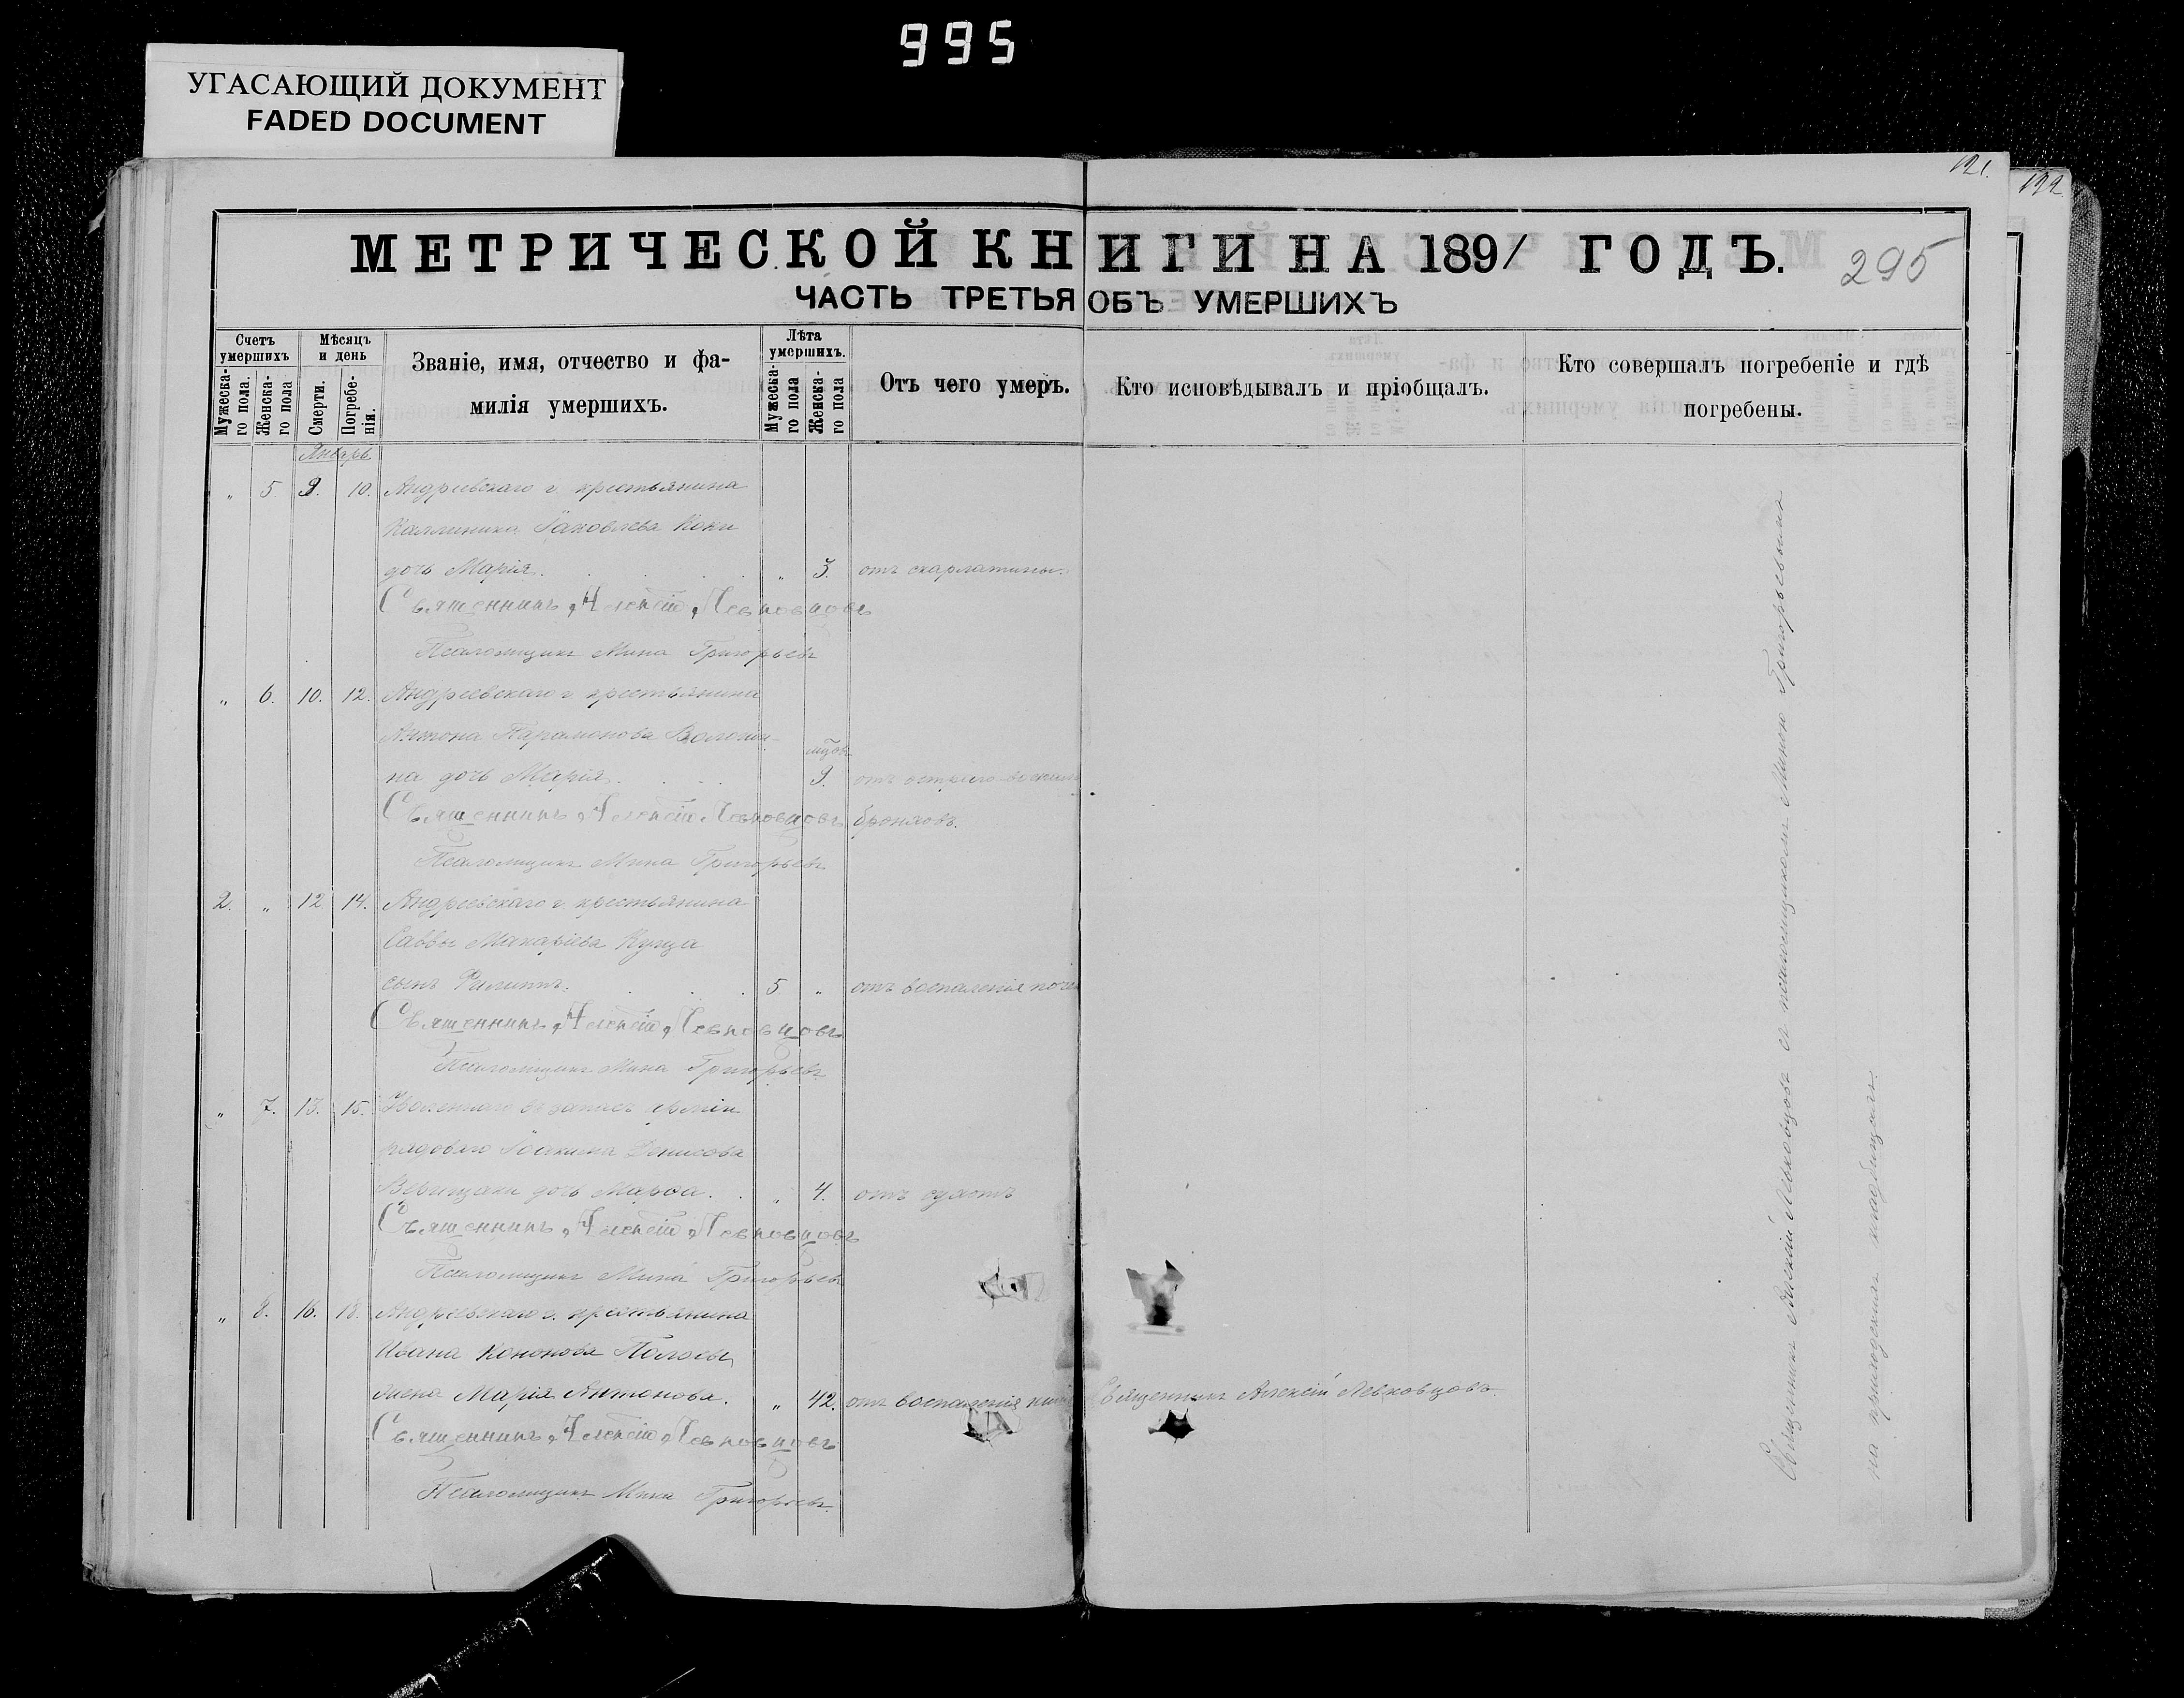 995
УГАСАЮЩИЙ ДОКУМЕНТ
FADED DOCUMENT
121.
122
МЕТРИЧЕСКОЙ КНИГИ НА 1891 ГОДЪ.
295
ЧАСТЬ ТРЕТЬЯ ОБЪ УМЕРШИХЪ
Счетъ умершихъ
Мужеска-го пола.
Женска-го пола
Мѣсяцъ и день
Смерти.
Погребе-нія.
Званіе, имя, отчество и фа-
милія умершихъ.
Лѣта умершихъ.
Мужеска-го пола
Женска-го пола
Отъ чего умеръ.
Кто исповѣдывалъ и пріобщалъ.
Кто совершалъ погребеніе и гдѣ
погребены.
Январь
„ 5. 9. 10. Андреевскаго г. крестьянина
Каллиника Іаковлева Коки
дочь Марія. „ 3. отъ скарлатины.
Священникъ Алексій Левковцовъ
Псаломщикъ Мина Григорьевъ
„ 6. 10. 12. Андреевскаго г. крестьянина
Антона Парамонова
на дочь Марія. 9. отъ остраго
Священникъ Алексій Левковцовъ
Псаломщикъ Мина Григорьевъ
2. „ 12 14. Андреевскаго г. крестьянина
Саввы Макаріева Куцца
сынъ Филиппъ. 5 „ отъ воспаленія
Священникъ Алексій Левковцовъ
Псаломщикъ Мина Григорьевъ
„ 7. 13. 15. въ запасъ арміи
рядоваго Іоакима Денисова
дочь Марѳа. „ 4. отъ сухотъ
Священникъ Алексій Левковцовъ
Псаломщикъ Мина Григорьевъ
„ 8. 16. 18. Андреевскаго г. крестьянина
Ивана Кононова
жена Марія Антонова. „ 42. отъ воспаленія Священникъ Алексій Левковцовъ
Священникъ Алексій Левковцовъ
Псаломщикъ Мина Григорьевъ.
Священникъ Алексій Левковцовъ съ псаломщикомъ Миною Григорьевымъ
на приходскомъ кладбищѣ.